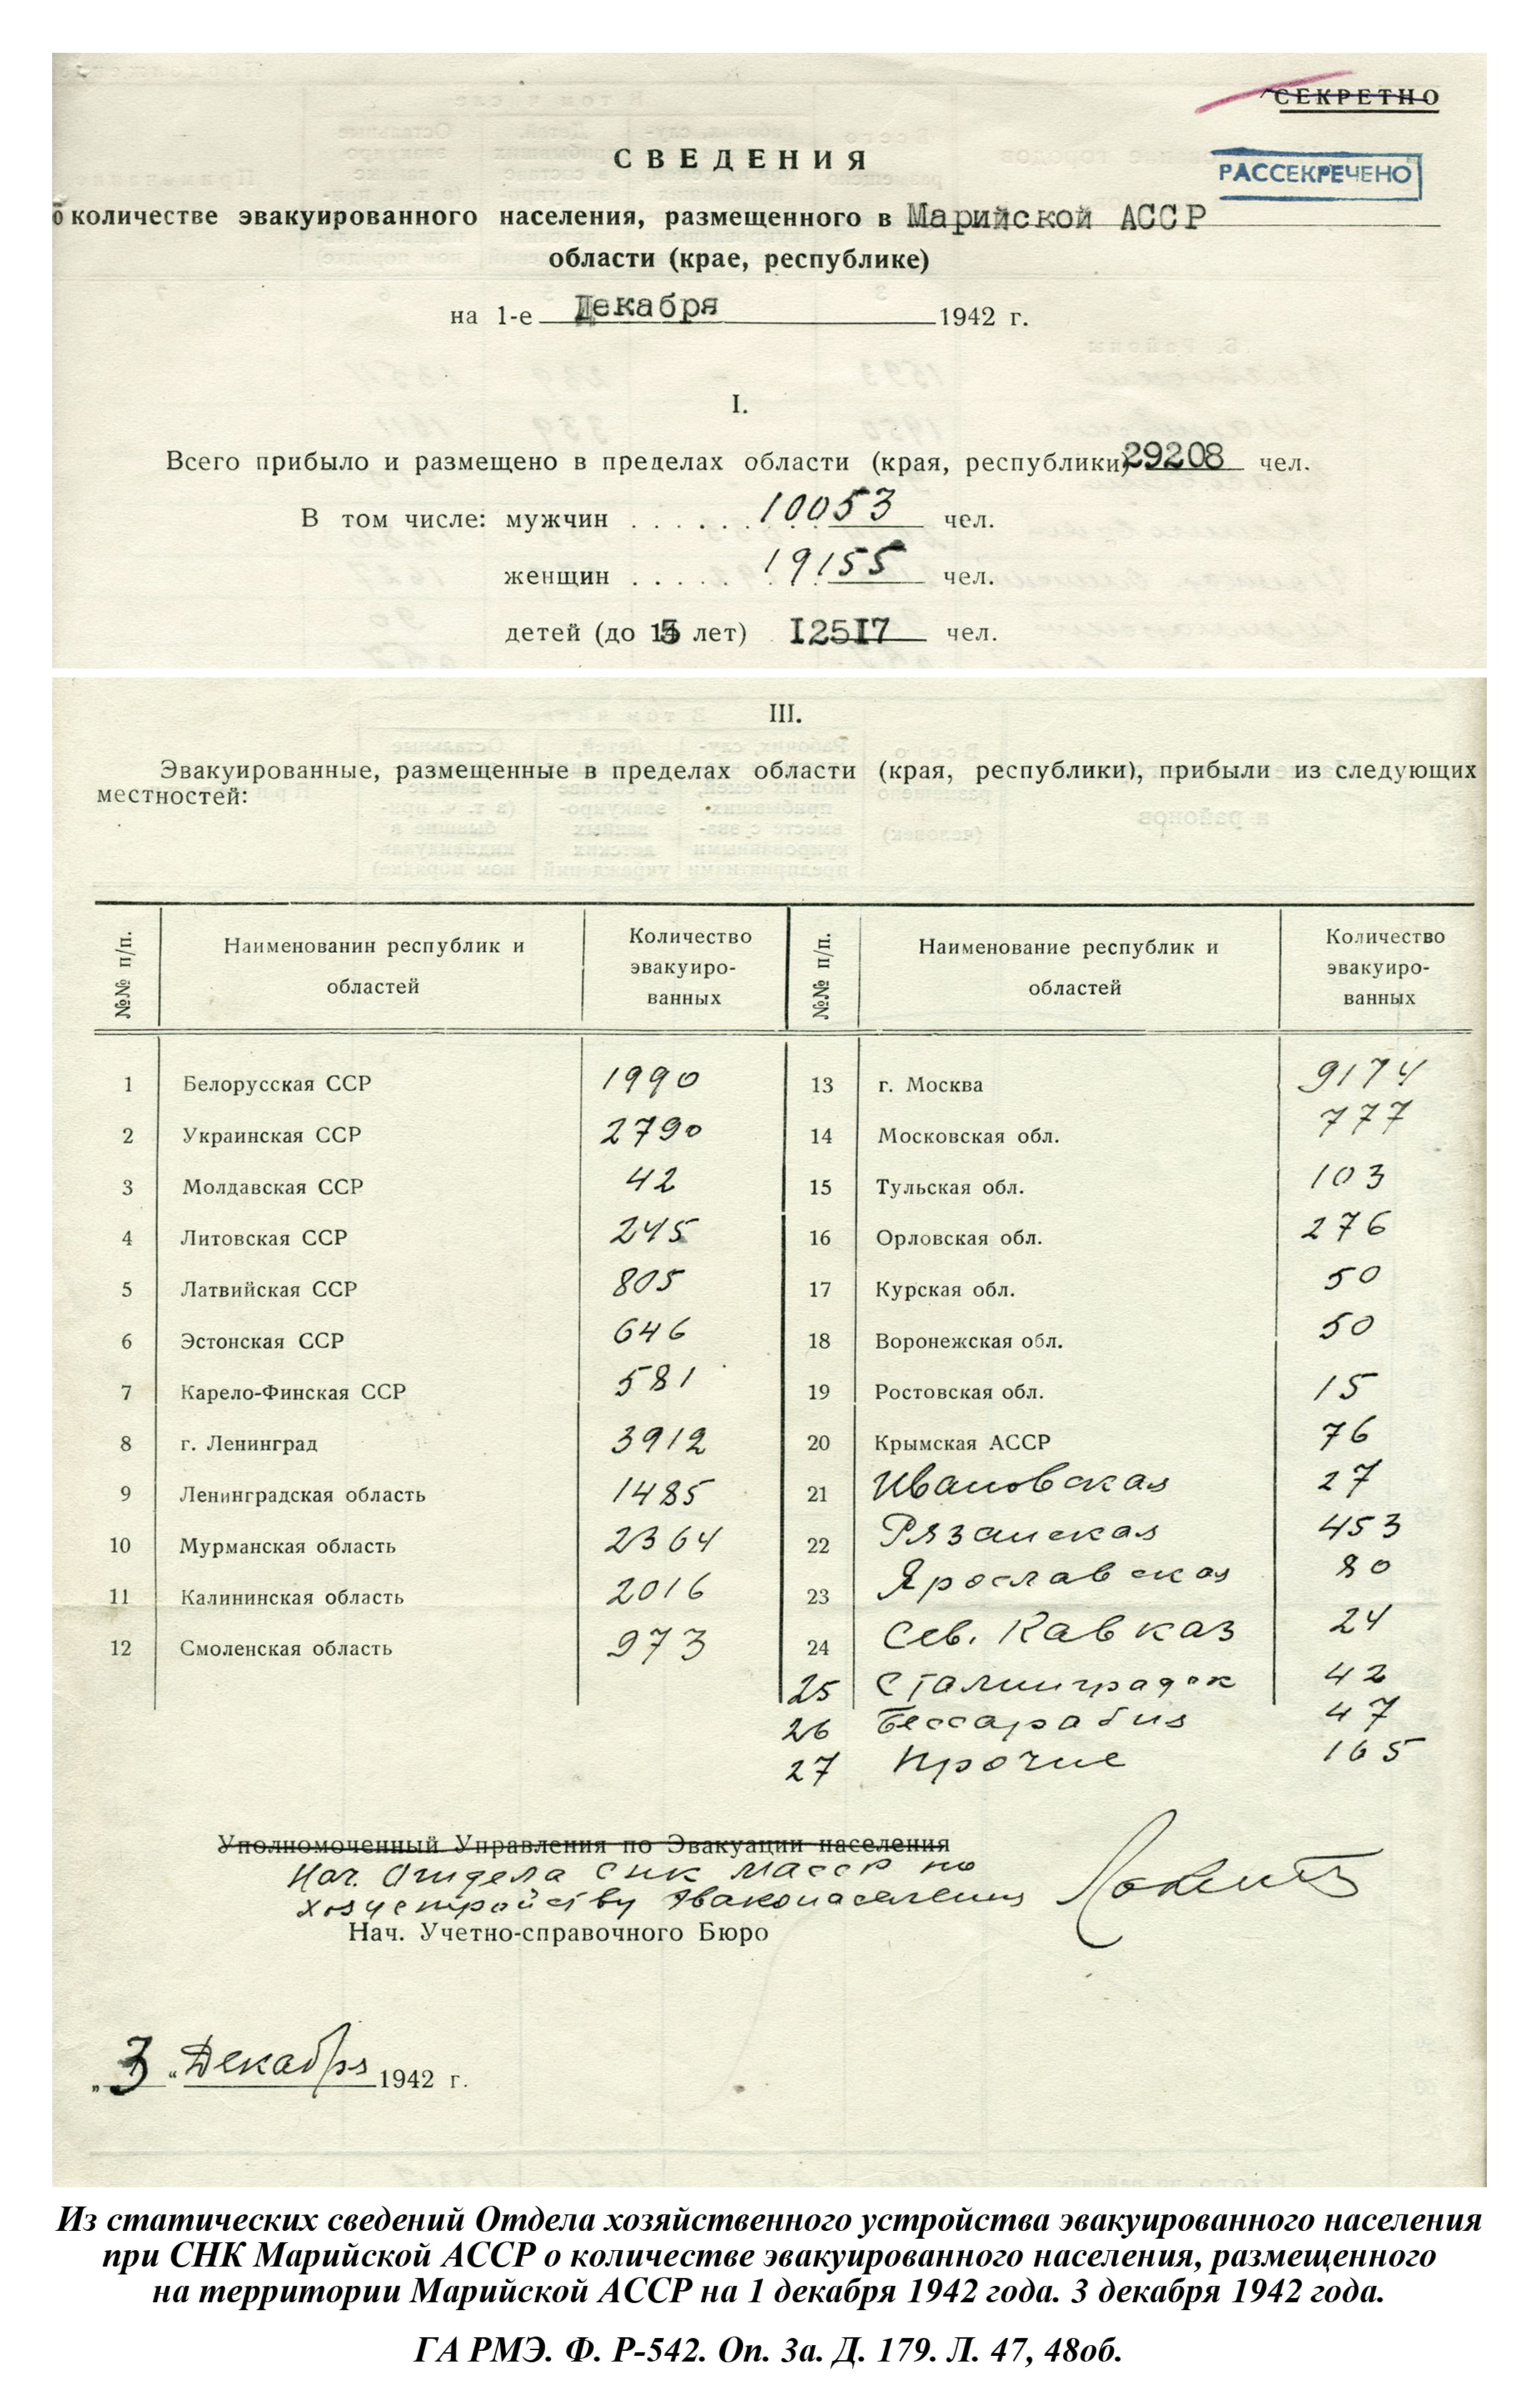 СЕКРЕТНО
РАССЕКРЕЧЕНО
СВЕДЕНИЯ
о количестве эвакуированного населения, размещенного в Марийской АССР
области (крае, республике)
на 1-е Декабря 1942 г.
I.
Всего прибыло и размещено в пределах области (края, республики) 29208 чел.
В том числе: мужчин . . . . . . 10053 чел.
женщин . . . . . 19155 чел.
детей (до 15 лет) 12517 чел.
III.
Эвакуированные, размещенные в пределах области (края, республики), прибыли из следующих
местностей:
№№ п/п. Наименованин республик и областей Количество эвакуиро-ванных №№ п/п. Наименование республик и областей Количество эвакуиро-ванных
1 Белорусская ССР 1990 13 г. Москва 9174
2 Украинская ССР 2790 14 Московская обл. 777
3 Молдавская ССР 42 15 Тульская обл. 103
4 Литовская ССР 245 16 Орловская обл. 276
5 Латвийская ССР 805 17 Курская обл. 50
6 Эстонская ССР 646 18 Воронежская обл. 50
7 Карело-Финская ССР 581 19 Ростовская обл. 15
8 г. Ленинград 3912 20 Крымская АССР 76
9 Ленинградская область 1485 21 Ивановская 27
10 Мурманская область 2364 22 Рязанская 453
11 Калининская область 2016 23 Ярославская 80
12 Смоленская область 973 24 Сев. Кавказ 24
25 Сталинградск 42
26 Бессарабия 47
27 Прочие 165
Уполномоченный Управления по Эвакуации населения
Нач. Отдела СНК МАССР по
хозустройству эваконаселения
Нач. Учетно-справочного Бюро
„3“ Декабря 1942 г.
Из статических сведений Отдела хозяйственного устройства эвакуированного населения
при СНК Марийской АССР о количестве эвакуированного населения, размещенного
на территории Марийской АССР на 1 декабря 1942 года. 3 декабря 1942 года.
ГА РМЭ. Ф. Р-542. Оп. 3а. Д. 179. Л. 47, 48об.